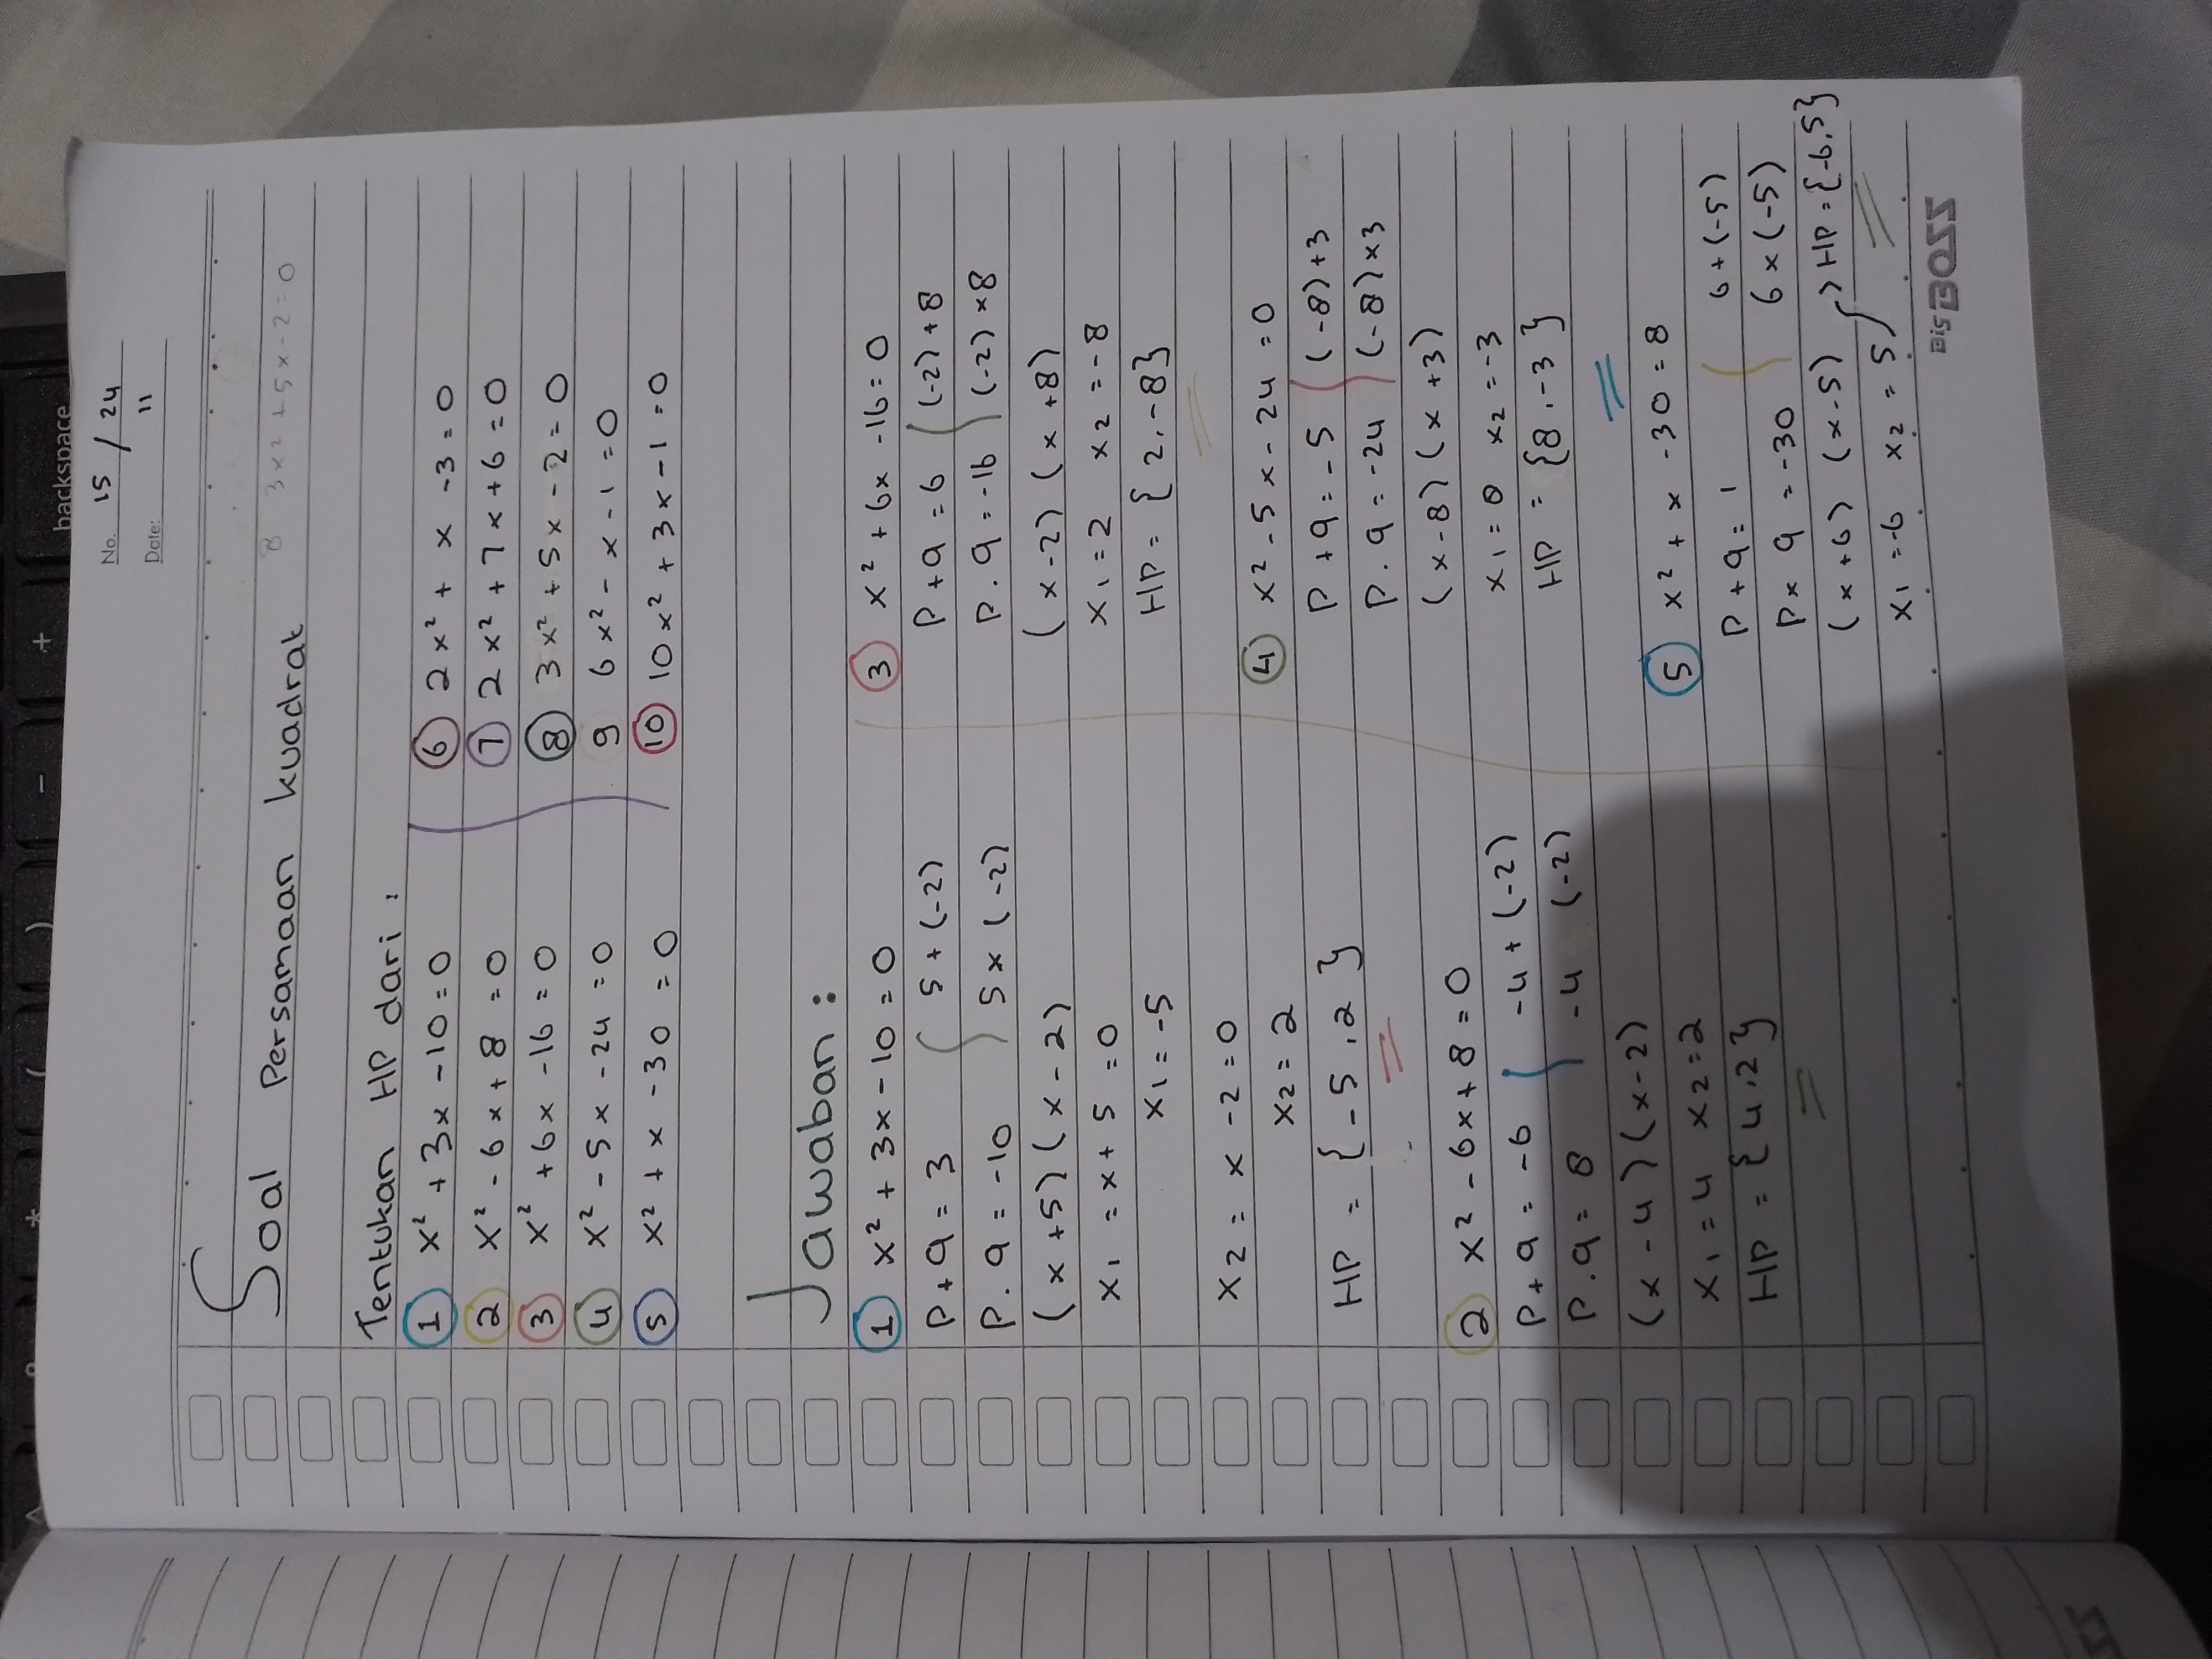 ^ & * ( ) - +
backspace
No. 15 / 24
Date: 11
Soal Persamaan kuadrat
8 3x2 + 5x - 2 = 0
Tentukan HP dari :
1 x² + 3x - 10 = 0
2 x² - 6x + 8 = 0
3 x² + 6x - 16 = 0
4 x² - 5x - 24 = 0
5 x² + x - 30 = 0
6 2x² + x - 3 = 0
7 2x² + 7x + 6 = 0
8 3x² + 5x - 2 = 0
9 6x² - x - 1 = 0
10 10x² + 3x - 1 = 0
Jawaban :
1 x² + 3x - 10 = 0
P + q = 3 5 + (-2)
P . q = -10 5 x (-2)
(x + 5) (x - 2)
x1 = x + 5 = 0
x1 = -5
x2 = x - 2 = 0
x2 = 2
HP = {-5, 2}
2 x² - 6x + 8 = 0
P + q = -6 -4 + (-2)
P . q = 8 -4 (-2)
(x - 4) (x - 2)
x1 = 4 x2 = 2
HP = {4, 2}
3 x² + 6x - 16 = 0
P + q = 6 (-2) + 8
P . q = -16 (-2) x 8
(x - 2) (x + 8)
x1 = 2 x2 = -8
HP = {2, -8}
4 x² - 5x - 24 = 0
P + q = -5 (-8) + 3
P . q = -24 (-8) x 3
(x - 8) (x + 3)
x1 = 8 x2 = -3
HP = {8, -3}
5 x² + x - 30 = 8
P + q = 1 6 + (-5)
P x q = -30 6 x (-5)
(x + 6) (x - 5) → HP = {-6, 5}
x1 = -6 x2 = 5
Big BOSS